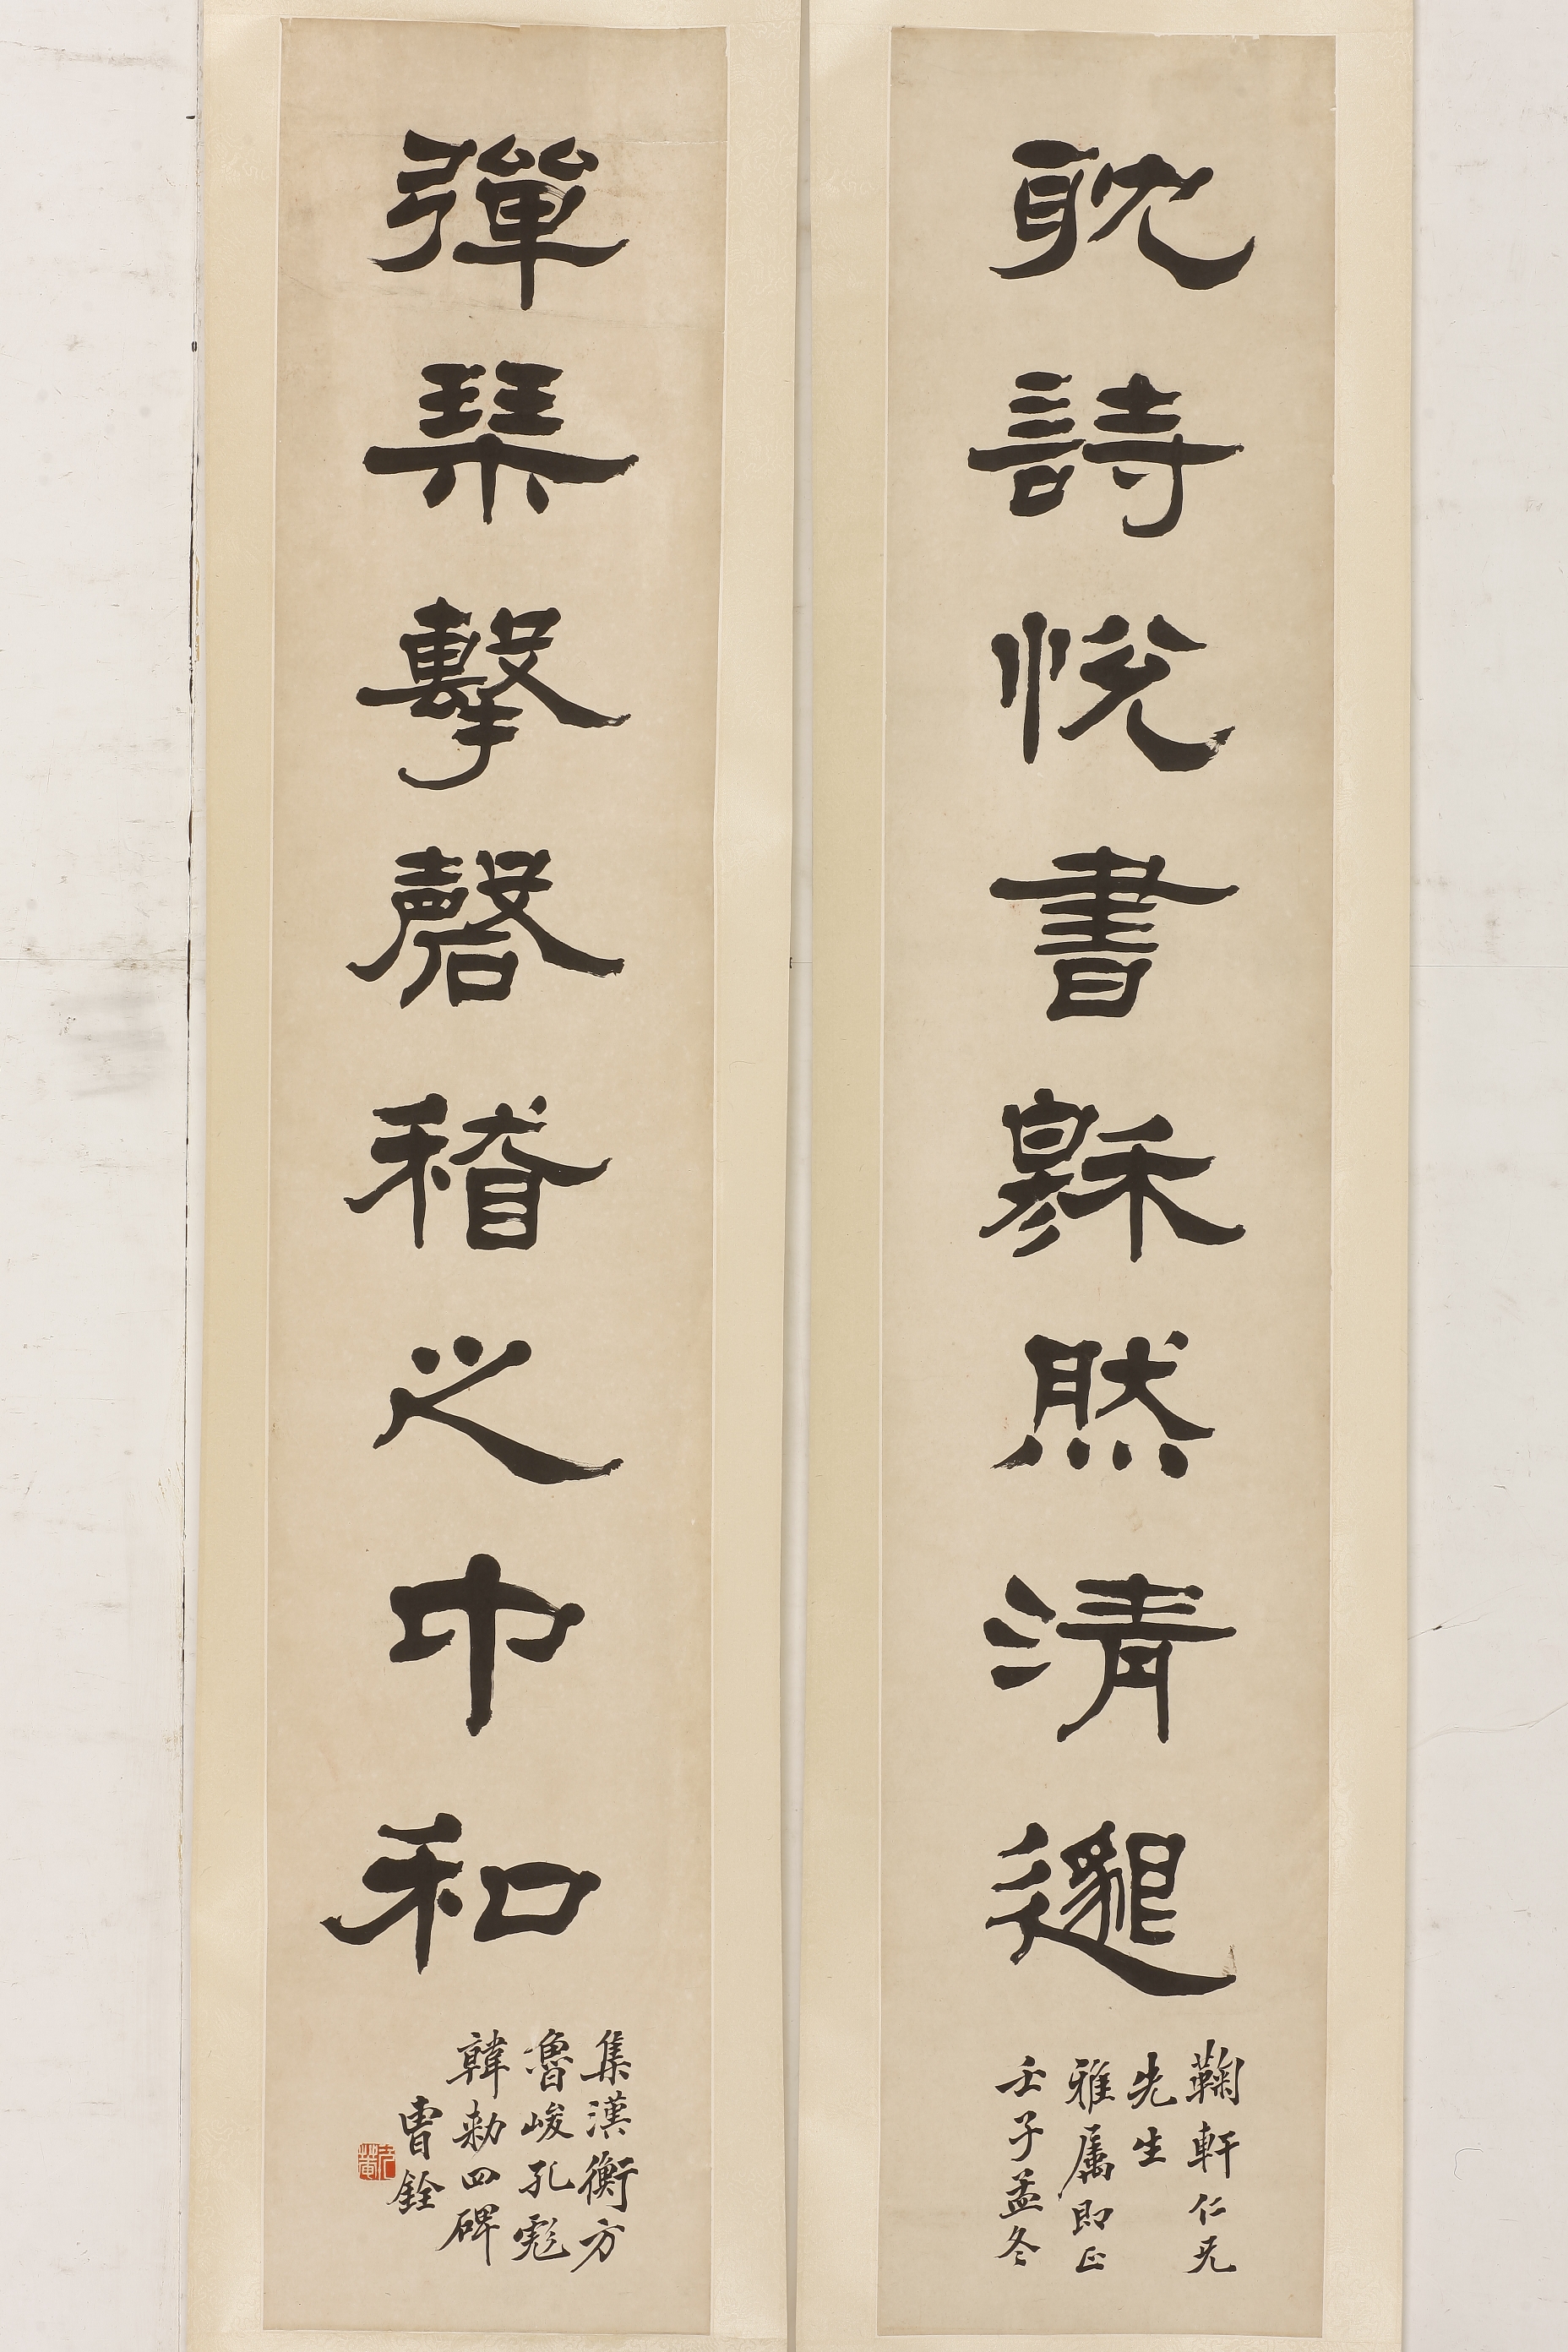 耽詩悅書穆然清邈
鞠軒仁兄
先生
雅屬即正
壬子孟冬
彈琴擊磬稽之中和
集漢衡方
魯峻孔彪
韓勅四碑
曾銓